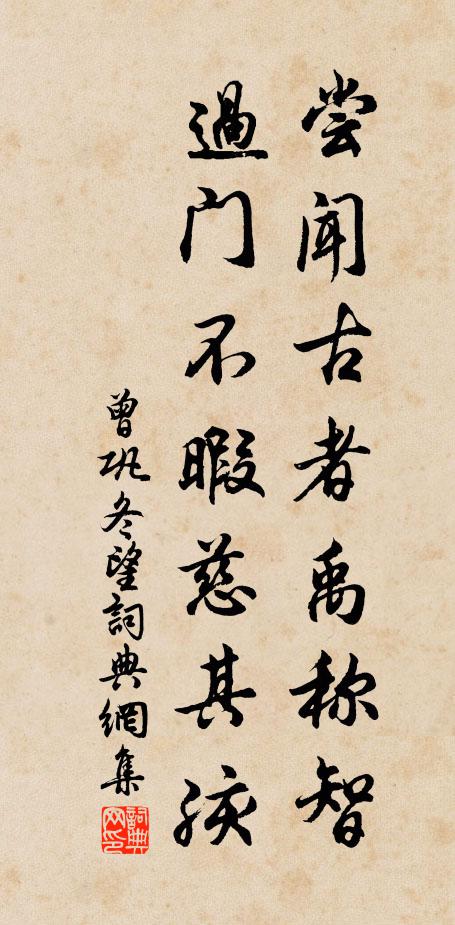 尝闻古者禹称智
過门不暇慈其孩
曾巩冬望詞典網集
詞典网印